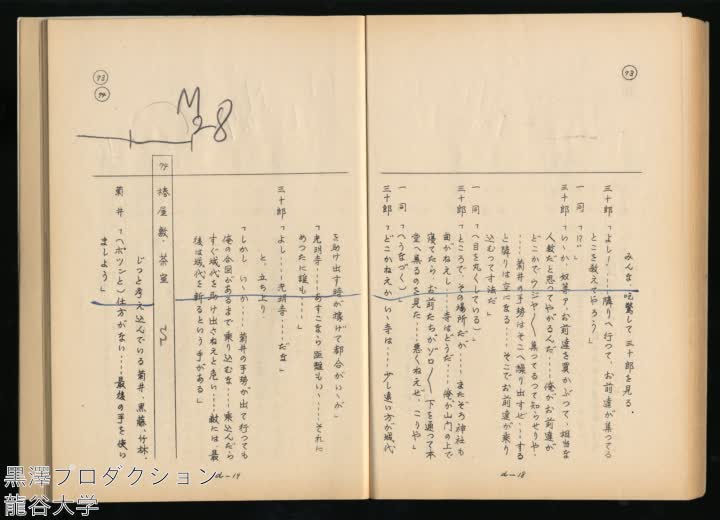 73
みんな、吃驚して三十郎を見る。
三十郎「よし!……隣りへ行って、お前達が集ってる
ところを教えてやろう」
一同「!?」
三十郎「いゝか、奴等ァ、お前達を買かぶって、相当な
人数だと思ってやがるんだ……俺がお前達が
どこかで、ウジャ〳〵集ってるって知らせりゃ、
……菊井の手勢はそこへ繰り出すぜ……する
と隣りは空になる……そこでお前達が乗り
込むって寸法だ」
一同「(目を丸くしている)」
三十郎「ところで、その場所だが……まただぞろ神社も
曲がねえし……寺はどうだ……俺が山門の上で
寝てたら、お前たちが、ゾロ〳〵下を通って本
堂へ集るのを見た……悪くねえぜ、こりゃ」
一同「(うなづく)」
三十郎「どこかねえか、いゝ寺は……少し遠い方が城代
d-18
を助け出す時が稼げて都合がいゝが」
「光明寺……あすこなら距離もいゝ……それに
めったに誰も……」
三十郎「よし……光明寺……だな」
と、立ち上り、
「しかし、いゝか……菊井の手勢が出て行っても
俺の合図があるまで乗り込むな……乗込んだら
すぐ城代を助け出さねえと危い……敵には、最
後は城代を斬るという手がある」
74 椿屋敷・茶室
じっと考え込んでいる菊井、黒藤、竹林。
菊井「(ポツンと)仕方がない……最後の手を使い
ましょう」
d-19
73
74
M
28
黒澤プロダクション
龍谷大学